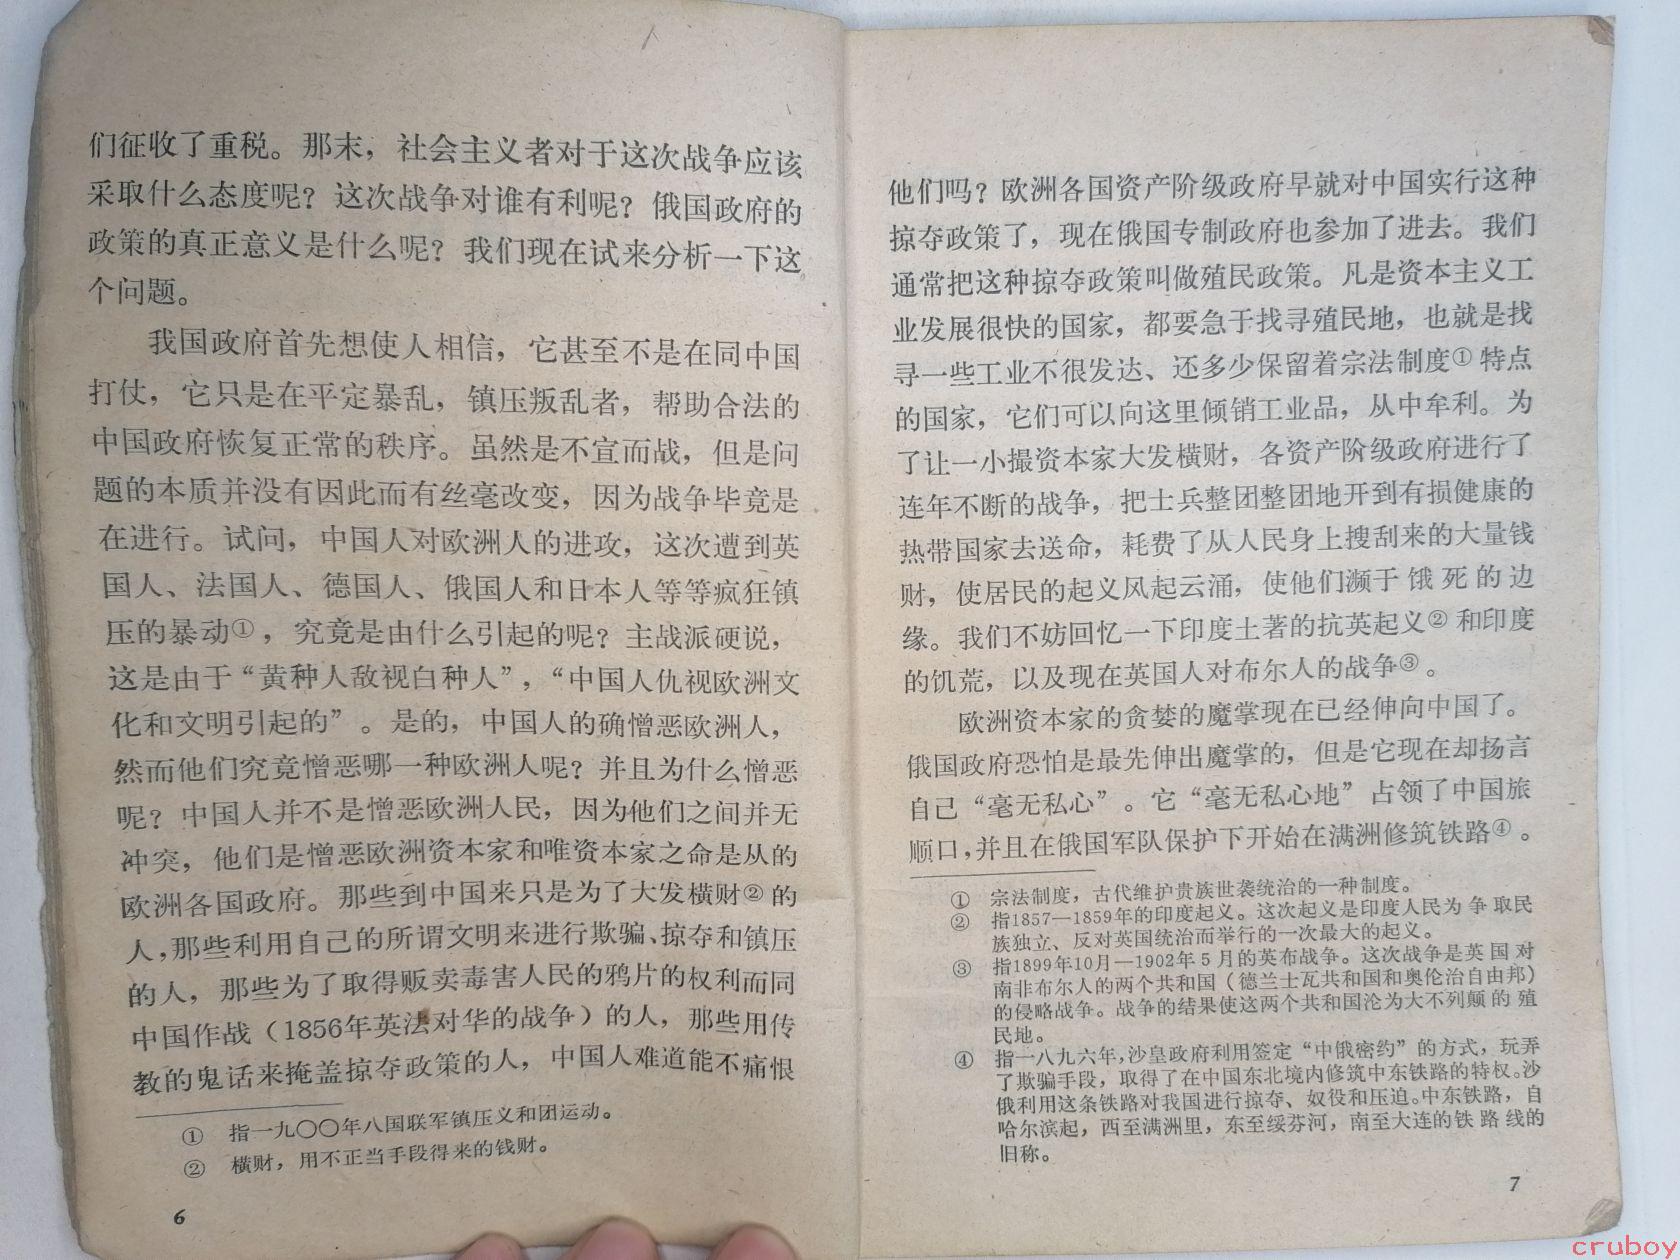 们征收了重税。那末，社会主义者对于这次战争应该
采取什么态度呢？这次战争对谁有利呢？俄国政府的
政策的真正意义是什么呢？我们现在试来分析一下这
个问题。
我国政府首先想使人相信，它甚至不是在同中国
打仗，它只是在平定暴乱，镇压叛乱者，帮助合法的
中国政府恢复正常的秩序。虽然是不宣而战，但是问
题的本质并没有因此而有丝毫改变，因为战争毕竟是
在进行。试问，中国人对欧洲人的进攻，这次遭到英
国人、法国人、德国人、俄国人和日本人等等疯狂镇
压的暴动①，究竟是由什么引起的呢？主战派硬说，
这是由于“黄种人敌视白种人”，“中国人仇视欧洲文
化和文明引起的”。是的，中国人的确憎恶欧洲人，
然而他们究竟憎恶哪一种欧洲人呢？并且为什么憎恶
呢？中国人并不是憎恶欧洲人民，因为他们之间并无
冲突，他们是憎恶欧洲资本家和唯资本家之命是从的
欧洲各国政府。那些到中国来只是为了大发横财②的
人，那些利用自己的所谓文明来进行欺骗、掠夺和镇压
的人，那些为了取得贩卖毒害人民的鸦片的权利而同
中国作战（1856年英法对华的战争）的人，那些用传
教的鬼话来掩盖掠夺政策的人，中国人难道能不痛恨
① 指一九〇〇年八国联军镇压义和团运动。
② 横财，用不正当手段得来的钱财。
6
他们吗？欧洲各国资产阶级政府早就对中国实行这种
掠夺政策了，现在俄国专制政府也参加了进去。我们
通常把这种掠夺政策叫做殖民政策。凡是资本主义工
业发展很快的国家，都要急于找寻殖民地，也就是找
寻一些工业不很发达、还多少保留着宗法制度①特点
的国家，它们可以向这里倾销工业品，从中牟利。为
了让一小撮资本家大发横财，各资产阶级政府进行了
连年不断的战争，把士兵整团整团地开到有损健康的
热带国家去送命，耗费了从人民身上搜刮来的大量钱
财，使居民的起义风起云涌，使他们濒于饿死的边
缘。我们不妨回忆一下印度土著的抗英起义②和印度
的饥荒，以及现在英国人对布尔人的战争③。
欧洲资本家的贪婪的魔掌现在已经伸向中国了。
俄国政府恐怕是最先伸出魔掌的，但是它现在却扬言
自己“毫无私心”。它“毫无私心地”占领了中国旅
顺口，并且在俄国军队保护下开始在满洲修筑铁路④。
① 宗法制度，古代维护贵族世袭统治的一种制度。
② 指1857—1859年的印度起义。这次起义是印度人民为争取民
族独立、反对英国统治而举行的一次最大的起义。
③ 指1899年10月—1902年5月的英布战争。这次战争是英国对
南非布尔人的两个共和国（德兰士瓦共和国和奥伦治自由邦）
的侵略战争。战争的结果使这两个共和国沦为大不列颠的殖
民地。
④ 指一八九六年，沙皇政府利用签定“中俄密约”的方式，玩弄
了欺骗手段，取得了在中国东北境内修筑中东铁路的特权。沙
俄利用这条铁路对我国进行掠夺、奴役和压迫。中东铁路，自
哈尔滨起，西至满洲里，东至绥芬河，南至大连的铁路线的
旧称。
7
cruboy